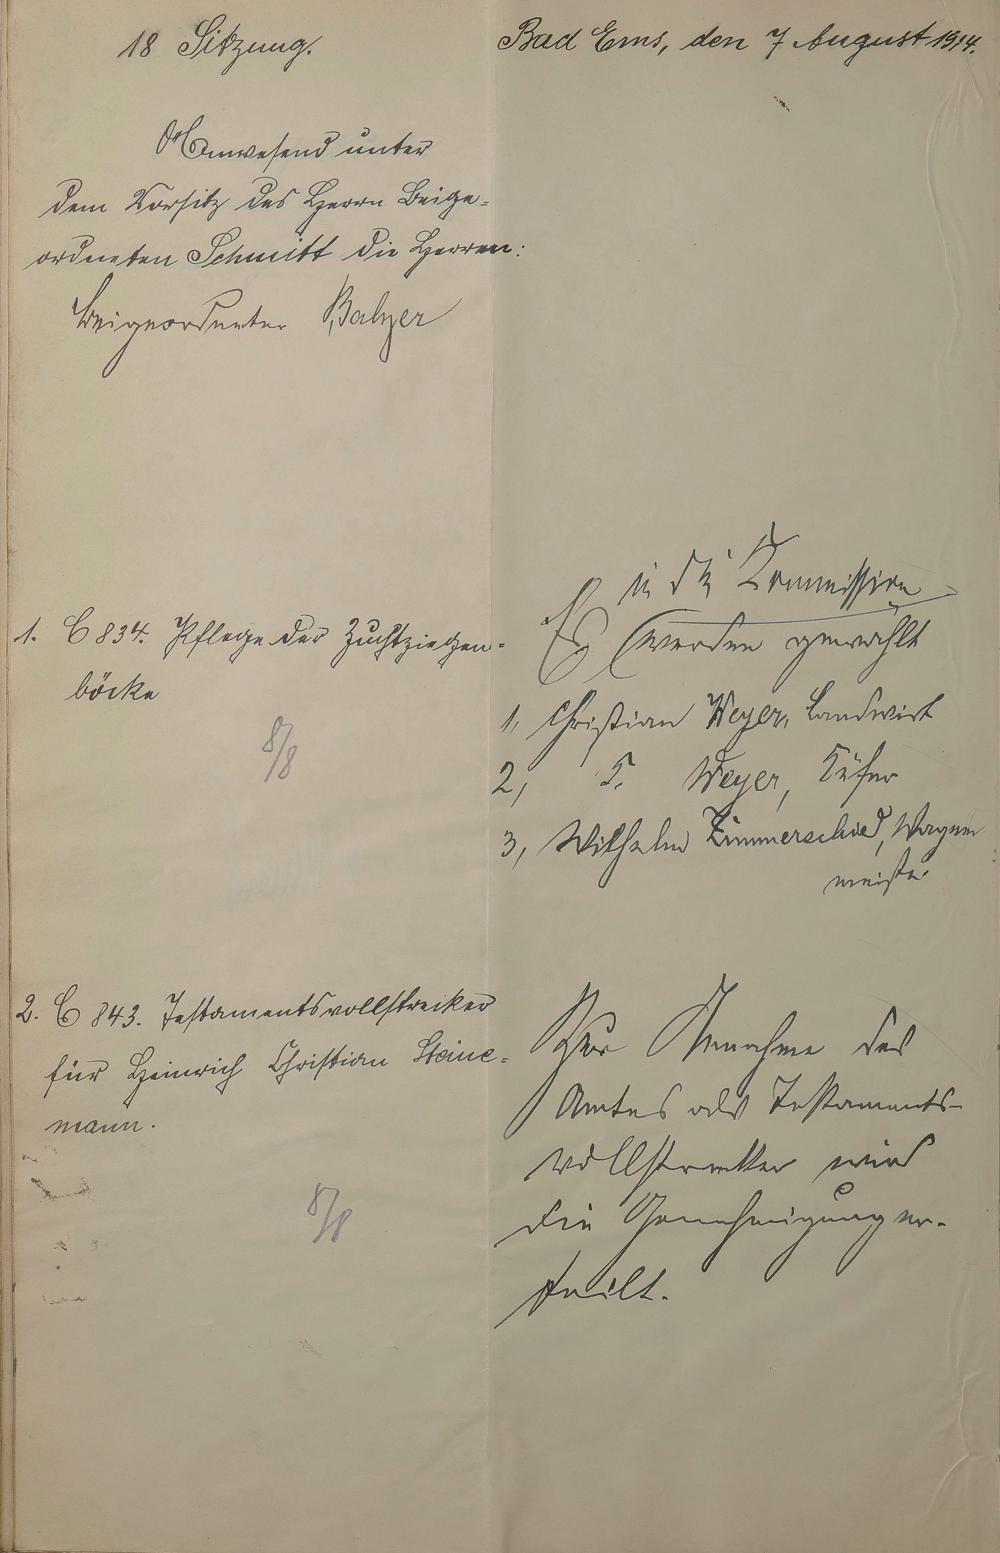 18 Sitzung.
Bad Ems, den 7 August 1914.
Anwesend unter
dem Vorsitz des Herrn Beige-
ordneten Schmitt die Herren:
Beigeordneter Balzer
1. C 834. Pflege der Zuchtziegen-
böcke
8/8
in die Kommission
Es werden gewählt
1, Christian Weyer, Landwirt
2, F. Weyer, Küfer
3, Wilhelm Zimmerschied, Wagner
meister
2. C 843. Testamentsvollstrecker
für Heinrich Christian Steine-
mann.
8/8
Zur Annahme des
Amtes als Testaments-
vollstrecker wird
die Genehmigung er-
teilt.